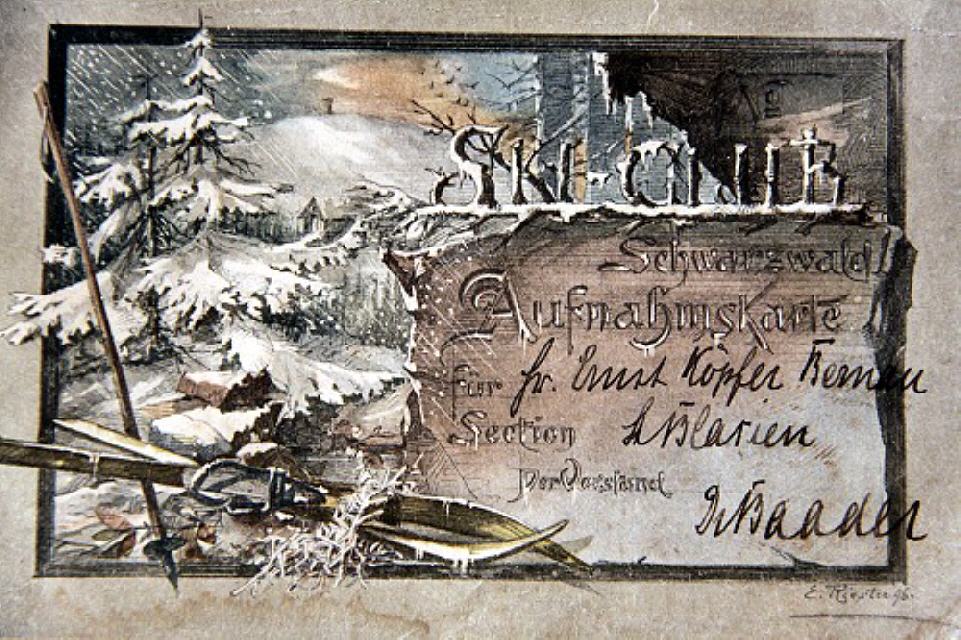 SKI-CLUB
Schwarzwald
Aufnahmskarte
Für Hr. Ernst Köpfer Bernau
Section St Blasien
Der Vorstand
Dr Baader